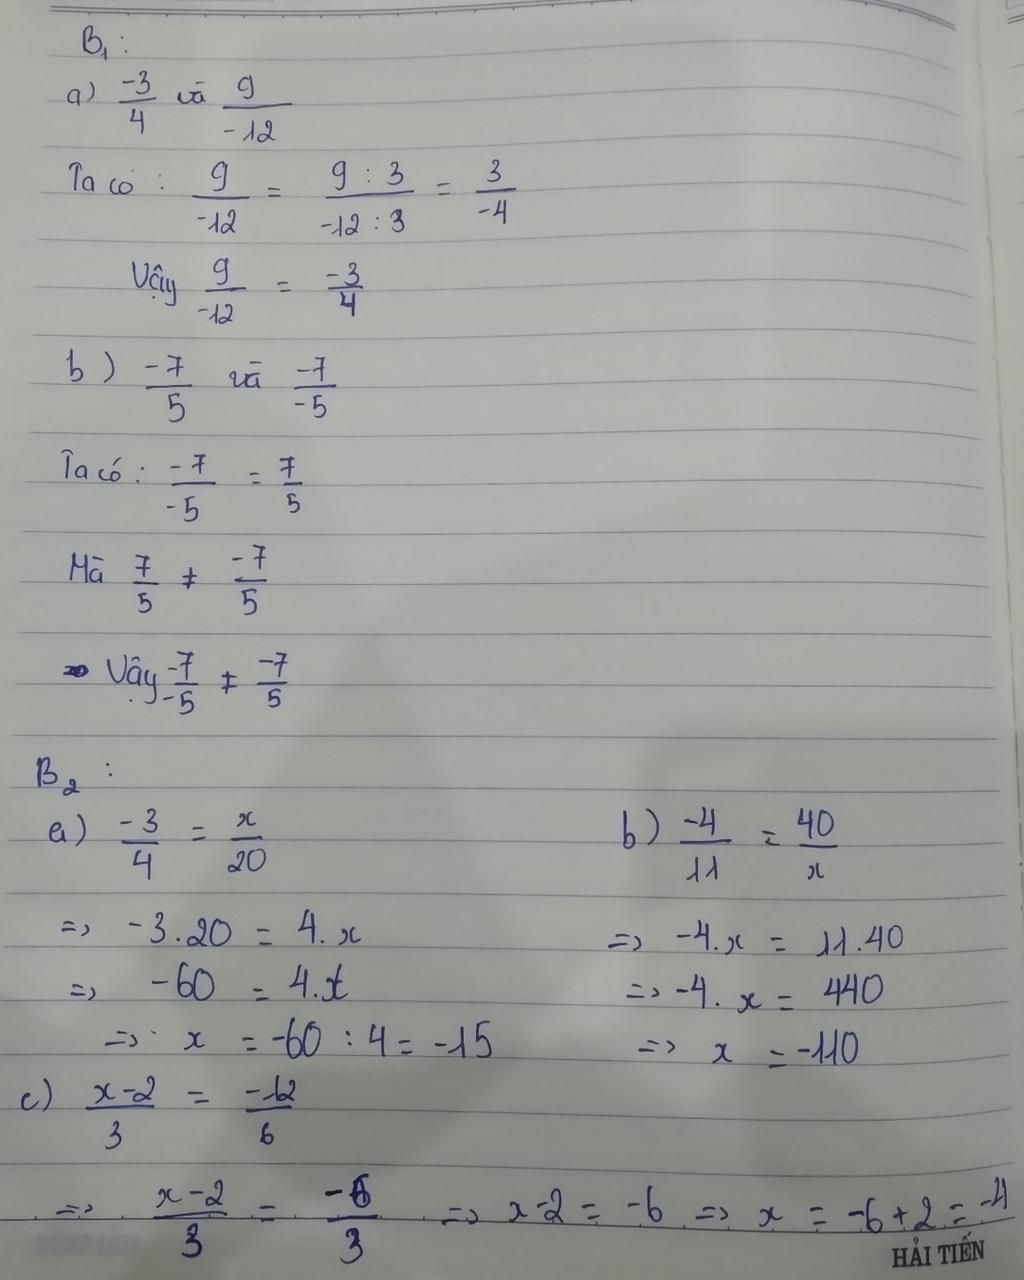 B₁ :
a) -3/4 và 9/-12
Ta có : 9/-12 = 9 : 3/-12 : 3 = 3/-4
Vậy 9/-12 = -3/4
b) -7/5 và -7/-5
Ta có : -7/-5 = 7/5
Mà 7/5 ≠ -7/5
Vậy -7/-5 ≠ -7/5
B₂ :
a) -3/4 = x/20
=> -3.20 = 4.x
=> -60 = 4.x
=> x = -60 : 4 = -15
b) -4/11 = 40/x
=> -4.x = 11.40
=> -4.x = 440
=> x = -110
c) x-2/3 = -12/6
=> x-2/3 = -6/3 => x-2 = -6 => x = -6+2 = -4
HẢI TIẾN